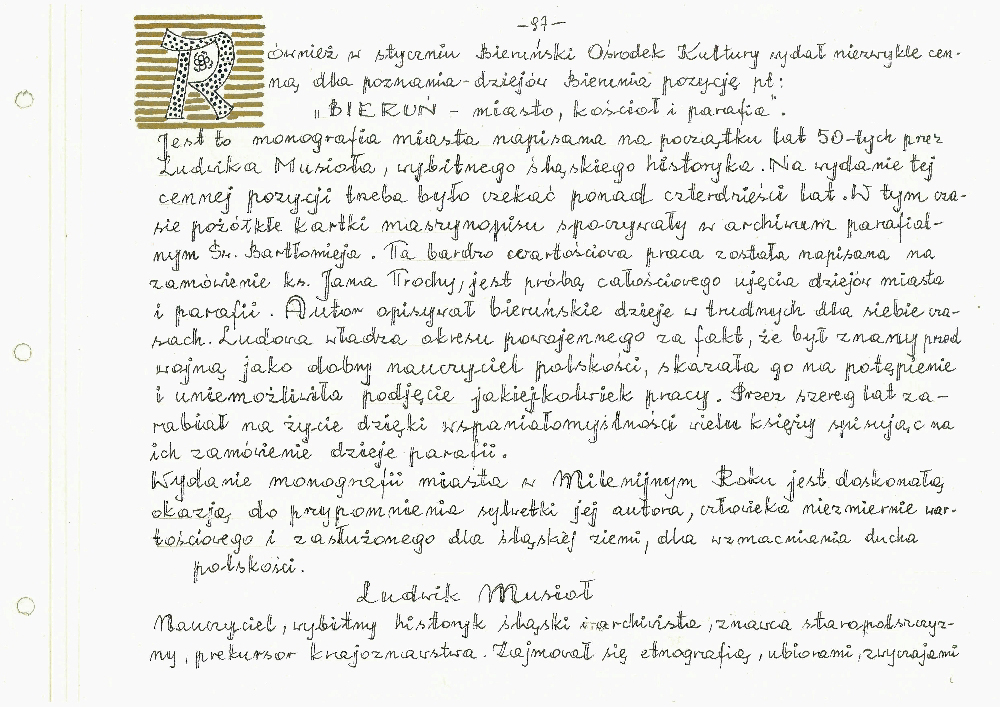 -97-
Również w styczniu Bieruński Ośrodek Kultury wydał niezwykle cen-
ną dla poznania-dziejów Bierunia pozycję pt:
„BIERUŃ - miasto, kościół i parafia".
Jest to monografia miasta napisana na początku lat 50-tych prez
Ludwika Musioła, wybitnego śląskiego historyka. Na wydanie tej
cennej pozycji trzeba było czekać ponad czterdzieści lat. W tym cza-
sie pożółkłe kartki maszynopisu spoczywały w archiwum parafial-
nym Św. Bartłomieja. Ta bardzo wartościowa praca została napisana na
zamówienie ks. Jana Trochy, jest próbą całościowego ujęcia dziejów miasta
i parafii. Autor opisywał bieruńskie dzieje w trudnych dla siebie cza-
sach. Ludowa władza okresu powojennego za fakt, że był znany przed
wojną jako dobry nauczyciel polskości, skazała go na potępienie
i uniemożliwiła podjęcie jakiejkolwiek pracy. Przez szereg lat za-
rabiał na życie dzięki wspaniałomyślności wielu księży spisując na
ich zamówienie dzieje parafii.
Wydanie monografii miasta w Milenijnym Roku jest doskonałą
okazją do przypomnienia sylwetki jej autora, człowieka niezmiernie war-
tościowego i zasłużonego dla śląskiej ziemi, dla wzmacniania ducha
polskości.
Ludwik Musioł
Nauczyciel, wybitny historyk śląski i archiwista, znawca staropolszczyz-
ny, prekursor krajoznawstwa. Zajmował się etnografią, ubiorami, zwyczajami